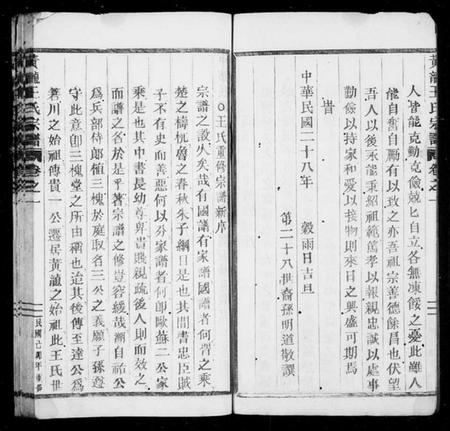 黃龍王氏宗譜 卷之一
人皆能克勤克儉兢匕自立各無凍餒之憂此雖人
能自奮自勵有以致之亦吾祖宗善德餘昌也伏望
吾人以後永能秉紹祖範萬孝以報親忠誠以處事
勤儉以持家和愛以接物則來日之興盛可期焉
旹
中華民國二十八年 穀雨日吉旦
第二十八世裔孫明道敬譔
○王氏重脩宗譜新序
宗譜之設久矣哉有國譜有家譜國譜者何晉之乘
楚之檮杌魯之春秋朱子綱目是也其間書忠臣賊
子不有史而善惡何以分家譜者何即歐蘇二公家
乘是也其中書長幼尊卑貴賤親疏後人則而效之
而譜之名於是乎著宗譜之修豈容緩哉溯自祜公
爲兵部侍郎植三槐於庭取名三公之義厥子孫遵
守此意即三槐堂之所由稱也迨其後傳至達公爲
算川之始祖傳貴一公遷居黃龍之始祖此王氏世
黃龍王氏宗譜 卷之一
民國己卯年重修